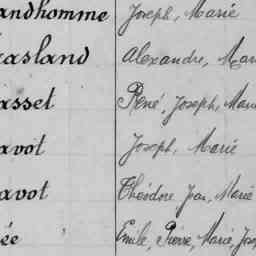 andhomme Joseph, Marie
asland Alexandre, Mar
asset René, Joseph, Mari
avot Joseph, Marie
avot Théodore, Jean, Marie
ée Emile, Pierre, Marie, Jos